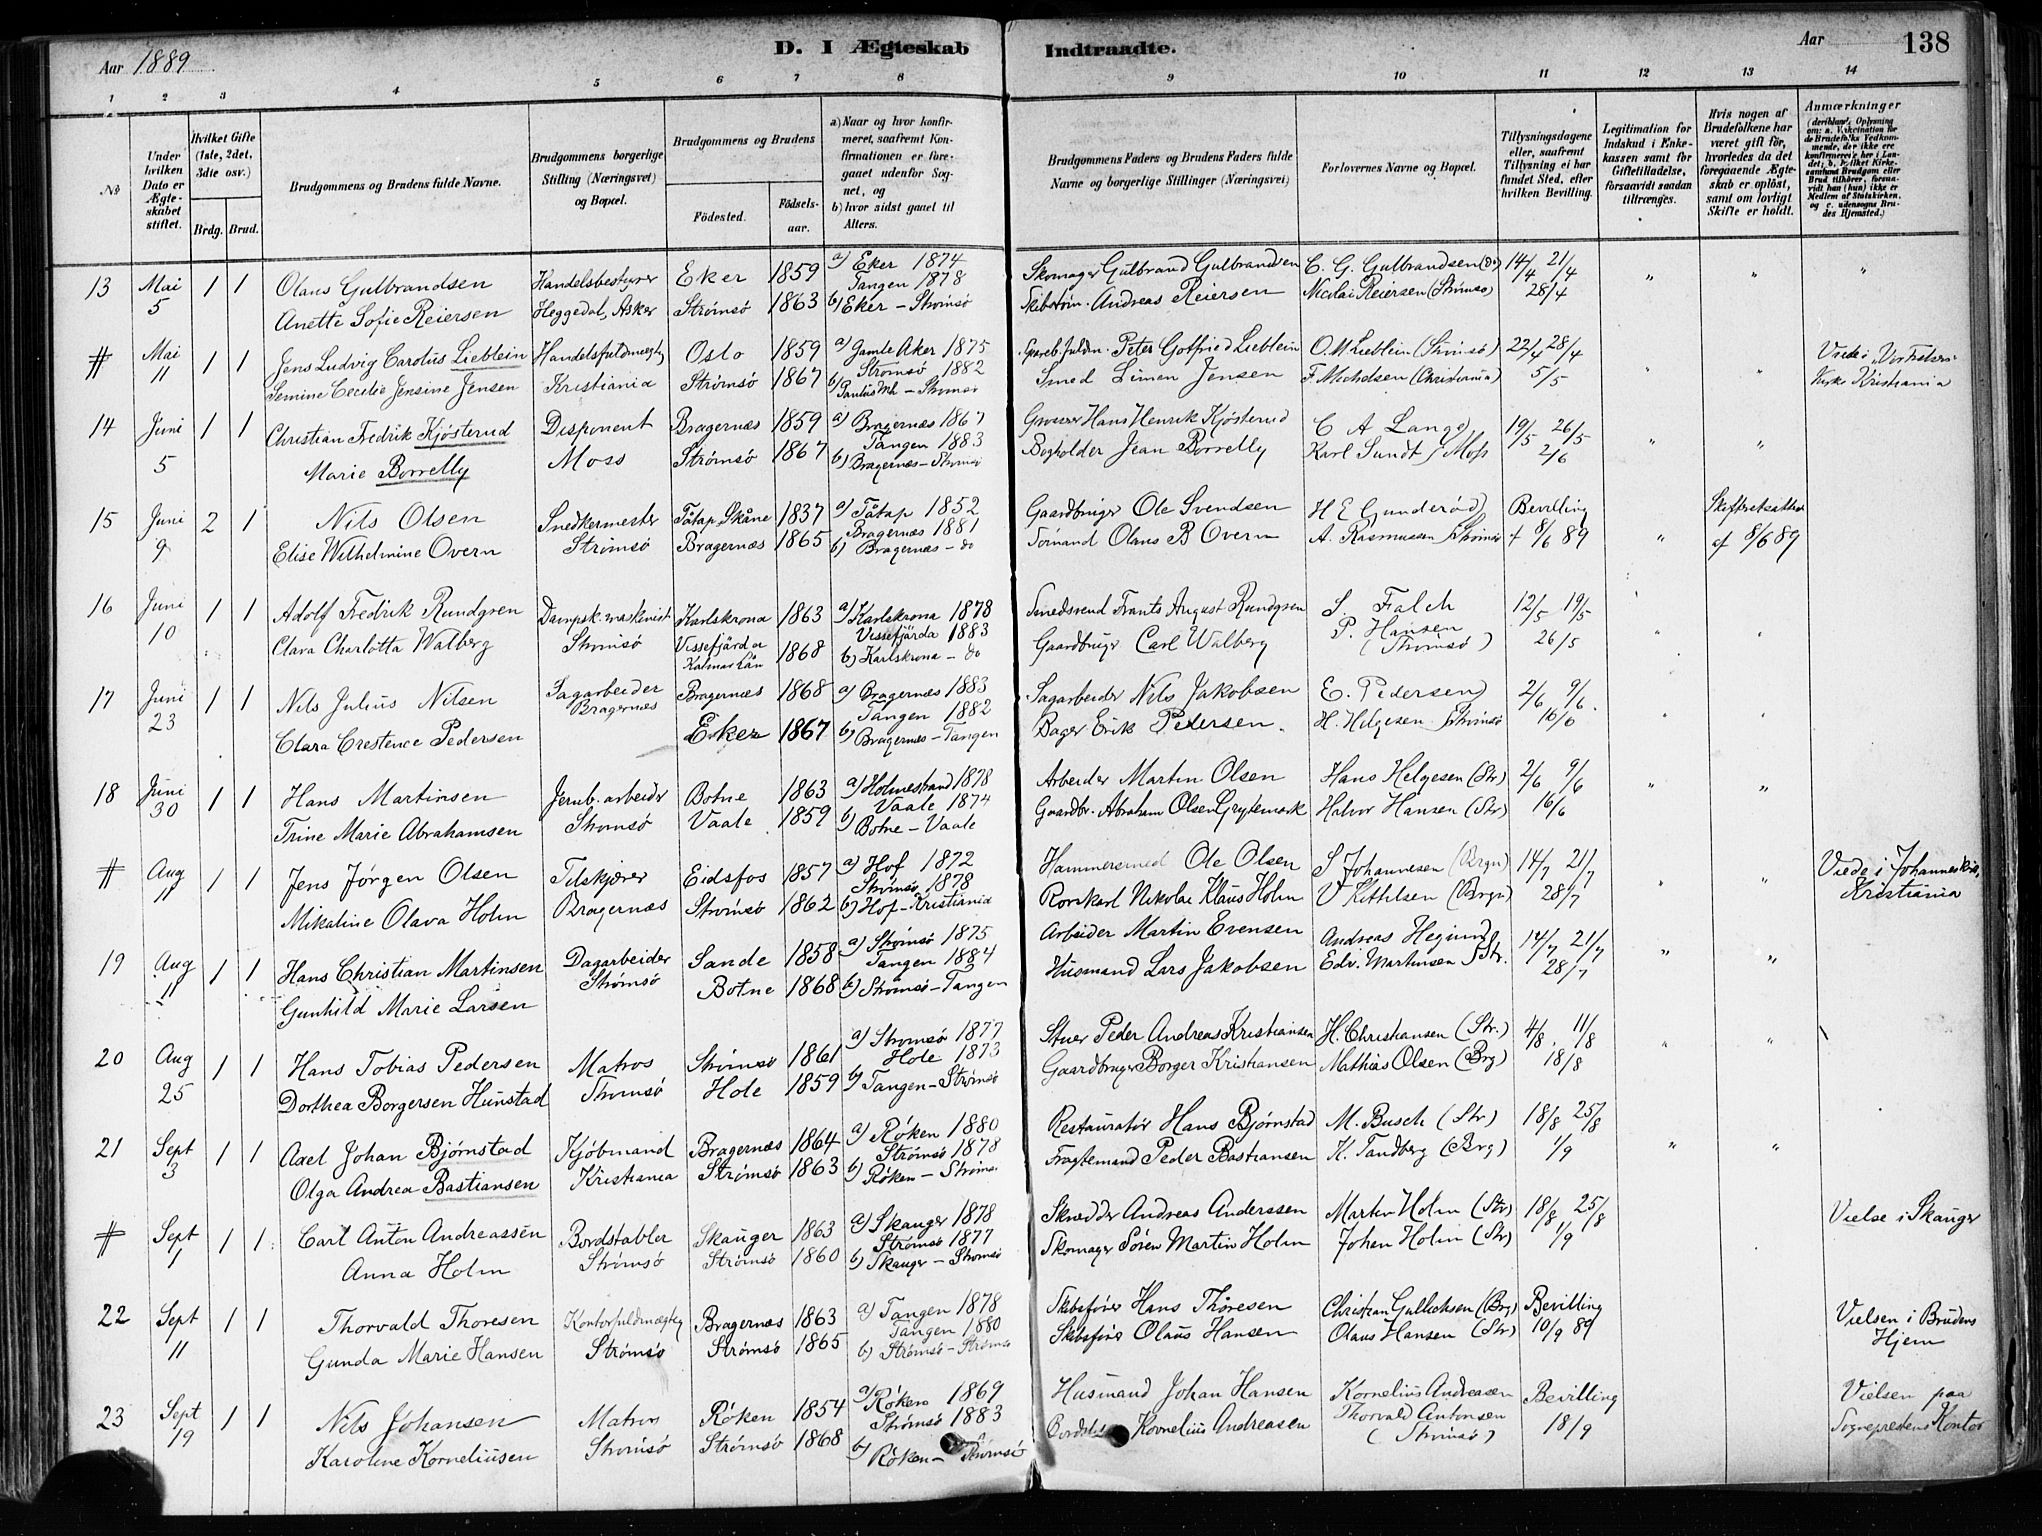 Aar 1889
D. I Ægteskab Indtraadte.
Aar 138
1 2 3 4 5 6 7 8 9 10 11 12 13 14
No
Under hvilken Dato er Ægteskabet stiftet.
Hvilket Gifte (1ste, 2det, 3die osv.)
Brdg. Brud.
Brudgommens og Brudens fulde Navne.
Brudgommens borgerlige Stilling (Næringsvei) og Bopæl.
Brudgommens og Brudens
Fødested. Fødselsaar.
a) Naar og hvor konfirmeret, saafremt Konfirmationen er foregaaet udenfor Sognet, og
b) hvor sidst gaaet til Alters.
Brudgommens Faders og Brudens Faders fulde Navne og borgerlige Stillinger (Næringsvei)
Forlovernes Navne og Bopæl.
Tillysningsdagene eller, saafremt Tillysning ei har fundet Sted, efter hvilken Bevilling.
Legitimation for Indskud i Enkekassen samt for Giftetilladelse, forsaavidt saadan tiltrænges.
Hvis nogen af Brudefolkene har været gift før, hvorledes da det foregaaende Ægteskab er opløst, samt om lovligt Skifte er holdt.
Anmærkninger (deriblandt Oplysning om: a. Vakcination for de Brudefolks Vedkommende, der ikke ere konfirmerede her i Landet; b. hvilket Kirkesamfund Brudgom eller Brud tilhører, forsaavidt han (hun) ikke er Medlem af Statskirken, og c. udensogns Brudes Hjemsted.)
13 Mai 1 1 Olaus Gulbrandsen Handelsbestyrer Eker 1859 a) Eker 1874 Skomager Gulbrand Gulbrandsen C. G. Gulbrandsen 14/4 21/4 " " "
5 Anette Sofie Reiersen Heggedal, Asker Strømsø 1863 Tangen 1878 b) Eker - Strømsø Skibstøm. Andreas Reiersen Nicolai Reiersen (Strømsø) 28/4
# Mai 1 1 Jens Ludvig Carolus Lieblein Handelsfuldmegtig Oslo 1859 a) Gamle Aker 1875 Peter Gotfried Lieblein O. M. Lieblein (Strømsø) 22/4 28/4 " "
11 Semine Cecilie Jensine Jensen Kristiania Strømsø 1867 Strømsø 1882 b) - Strømsø Smed Simen Jensen F. Michelsen (Christiania) 5/5 Kirke Kristiania
14 Juni 1 1 Christian Fredrik Kjøsterud Disponent Bragernæs 1859 a) Bragernæs 1867 Grosser Hans Henrik Kjøsterud C A Lange 19/5 26/5 " "
5 Marie Borrelly Moss Strømsø 1867 Tangen 1883 b) Bragernæs - Strømsø Bogholder Jean Borrelly Karl Sundt Moss 2/6
15 Juni 2 1 Nils Olsen Snedkermester Tåtap, Skåne 1837 a) Tåtap 1852 Gaardbruger Ole Svendsen H E Gunderød Bevilling
9 Elise Wilhelmine Overn Strømsø Bragernæs 1865 Bragernæs 1881 b) Bragernæs - do Olaus B Overn A. Rasmussen Strømsø 8/6 89 " af 8/6 89
16 Juni 1 1 Adolf Fredrik Rundgren Dampsk. maskinist Karlskrona 1863 a) Karlskrona 1878 Smedsvend Frants August Rundgren S. Falch 12/5 19/5
10 Clara Charlotta Walberg Strømsø Vissefjärda Kalmar Län 1868 Vissefjärda 1883 b) Karlskrona - do Gaardbruger Carl Walberg P. Hansen (Strømsø) 26/5
17 Juni 1 1 Nils Julius Nilsen Sagarbeider Bragernæs 1868 a) Bragernæs 1883 Sagarbeider Nils Jakobsen E. Pedersen 2/6 9/6
23 Clara Crestence Pedersen Bragernæs Eker 1867 Tangen 1882 b) Bragernæs - Tangen Bager Erik Pedersen H. Helgesen Strømsø 16/6
18 Juni 1 1 Hans Martinsen Jernb. arbeider Botne 1863 a) Holmestrand 1878 Arbeider Martin Olsen Hans Helgesen (Str) 2/6 9/6 " "
30 Trine Marie Abrahamsen Strømsø Vaale 1859 Vaale 1874 b) Botne - Vaale Gaardbr. Abraham Olsen Grytemark Halvor Hansen (Str) 16/6
# Aug 1 1 Jens Jørgen Olsen Tilskjærer Eidsfos 1857 a) Hof 1872 Hammersmed Ole Olsen S Johannesen (Brgn) 14/7 21/7 " " Viede i Johanneskir.
11 Mikaline Olava Holm Bragernæs Strømsø 1862 Strømsø 1878 b) Hof - Kristiania Rorskarl Nikolai Klaus Holm V Kittilsen (Brgn) 28/7 Kristiania
19 Aug 1 1 Hans Christian Martinsen Dagarbeider Sande 1858 a) Strømsø 1875 Arbeider Martin Evensen Andreas 14/7 21/7 " "
11 Gunhild Marie Larsen Strømsø Botne 1868 Tangen 1884 b) Strømsø - Tangen Husmand Lars Jakobsen Edv. Martinsen Str. 28/7
20 Aug 1 1 Hans Tobias Pedersen Matros Strømsø 1861 a) Strømsø 1877 Stuer Peder Andreas Kristiansen H. Christiansen (Str.) 4/8 11/8 " "
25 Dorthea Borgersen Hunstad Strømsø Hole 1859 Hole 1873 b) Tangen - Strømsø Gaardbruger Borger Kristiansen Mathias Olsen (Brg) 18/8
21 Sept 1 1 Axel Johan Bjørnstad Kjøbmand Bragernæs 1864 a) Røken 1880 Restauratør Hans Bjørnstad M. Busch (Str) 18/8 25/8 " "
3 Olga Andrea Bastiansen Kristiania Strømsø 1863 Strømsø 1878 b) Røken - Strømsø Fragtemand Peder Bastiansen K. Tandberg (Brg) 1/9
# Sept 1 1 Carl Anton Andreassen Bordstabler Skauger 1863 a) Skauger 1878 Skrædder Andreas Anderssen Martin Holm (Str) 18/8 25/8 Vielse i Skauger
1 Anna Holm Strømsø Strømsø 1860 Strømsø 1877 b) Skauger - Strømsø Skomager Søren Martin Holm Johan Holm (Str) 1/9
22 Sept 1 1 Thorvald Thoresen Kontorfuldmægtig Bragernæs 1863 a) Tangen 1878 Skibsfører Hans Thoresen Christian Gullichsen (Brg) Bevilling Vielsen i Brudens
11 Gunda Marie Hansen Strømsø Strømsø 1865 Tangen 1880 b) Strømsø - Strømsø Skibsfører Olaus Hansen Olaus Hansen (Str) 10/9 89 Hjem
23 Sept 1 1 Nils Johansen Matros Røken 1854 a) Røken 1869 Husmand Johan Hansen Kornelius Andreasen Bevilling Vielsen paa
19 Karoline Korneliusen Strømsø Strømsø 1868 Strømsø 1883 b) Røken - Strømsø Kornelius Andreasen Thorvald Antonsen (Strømsø) 18/9 Sogneprestens Kontor